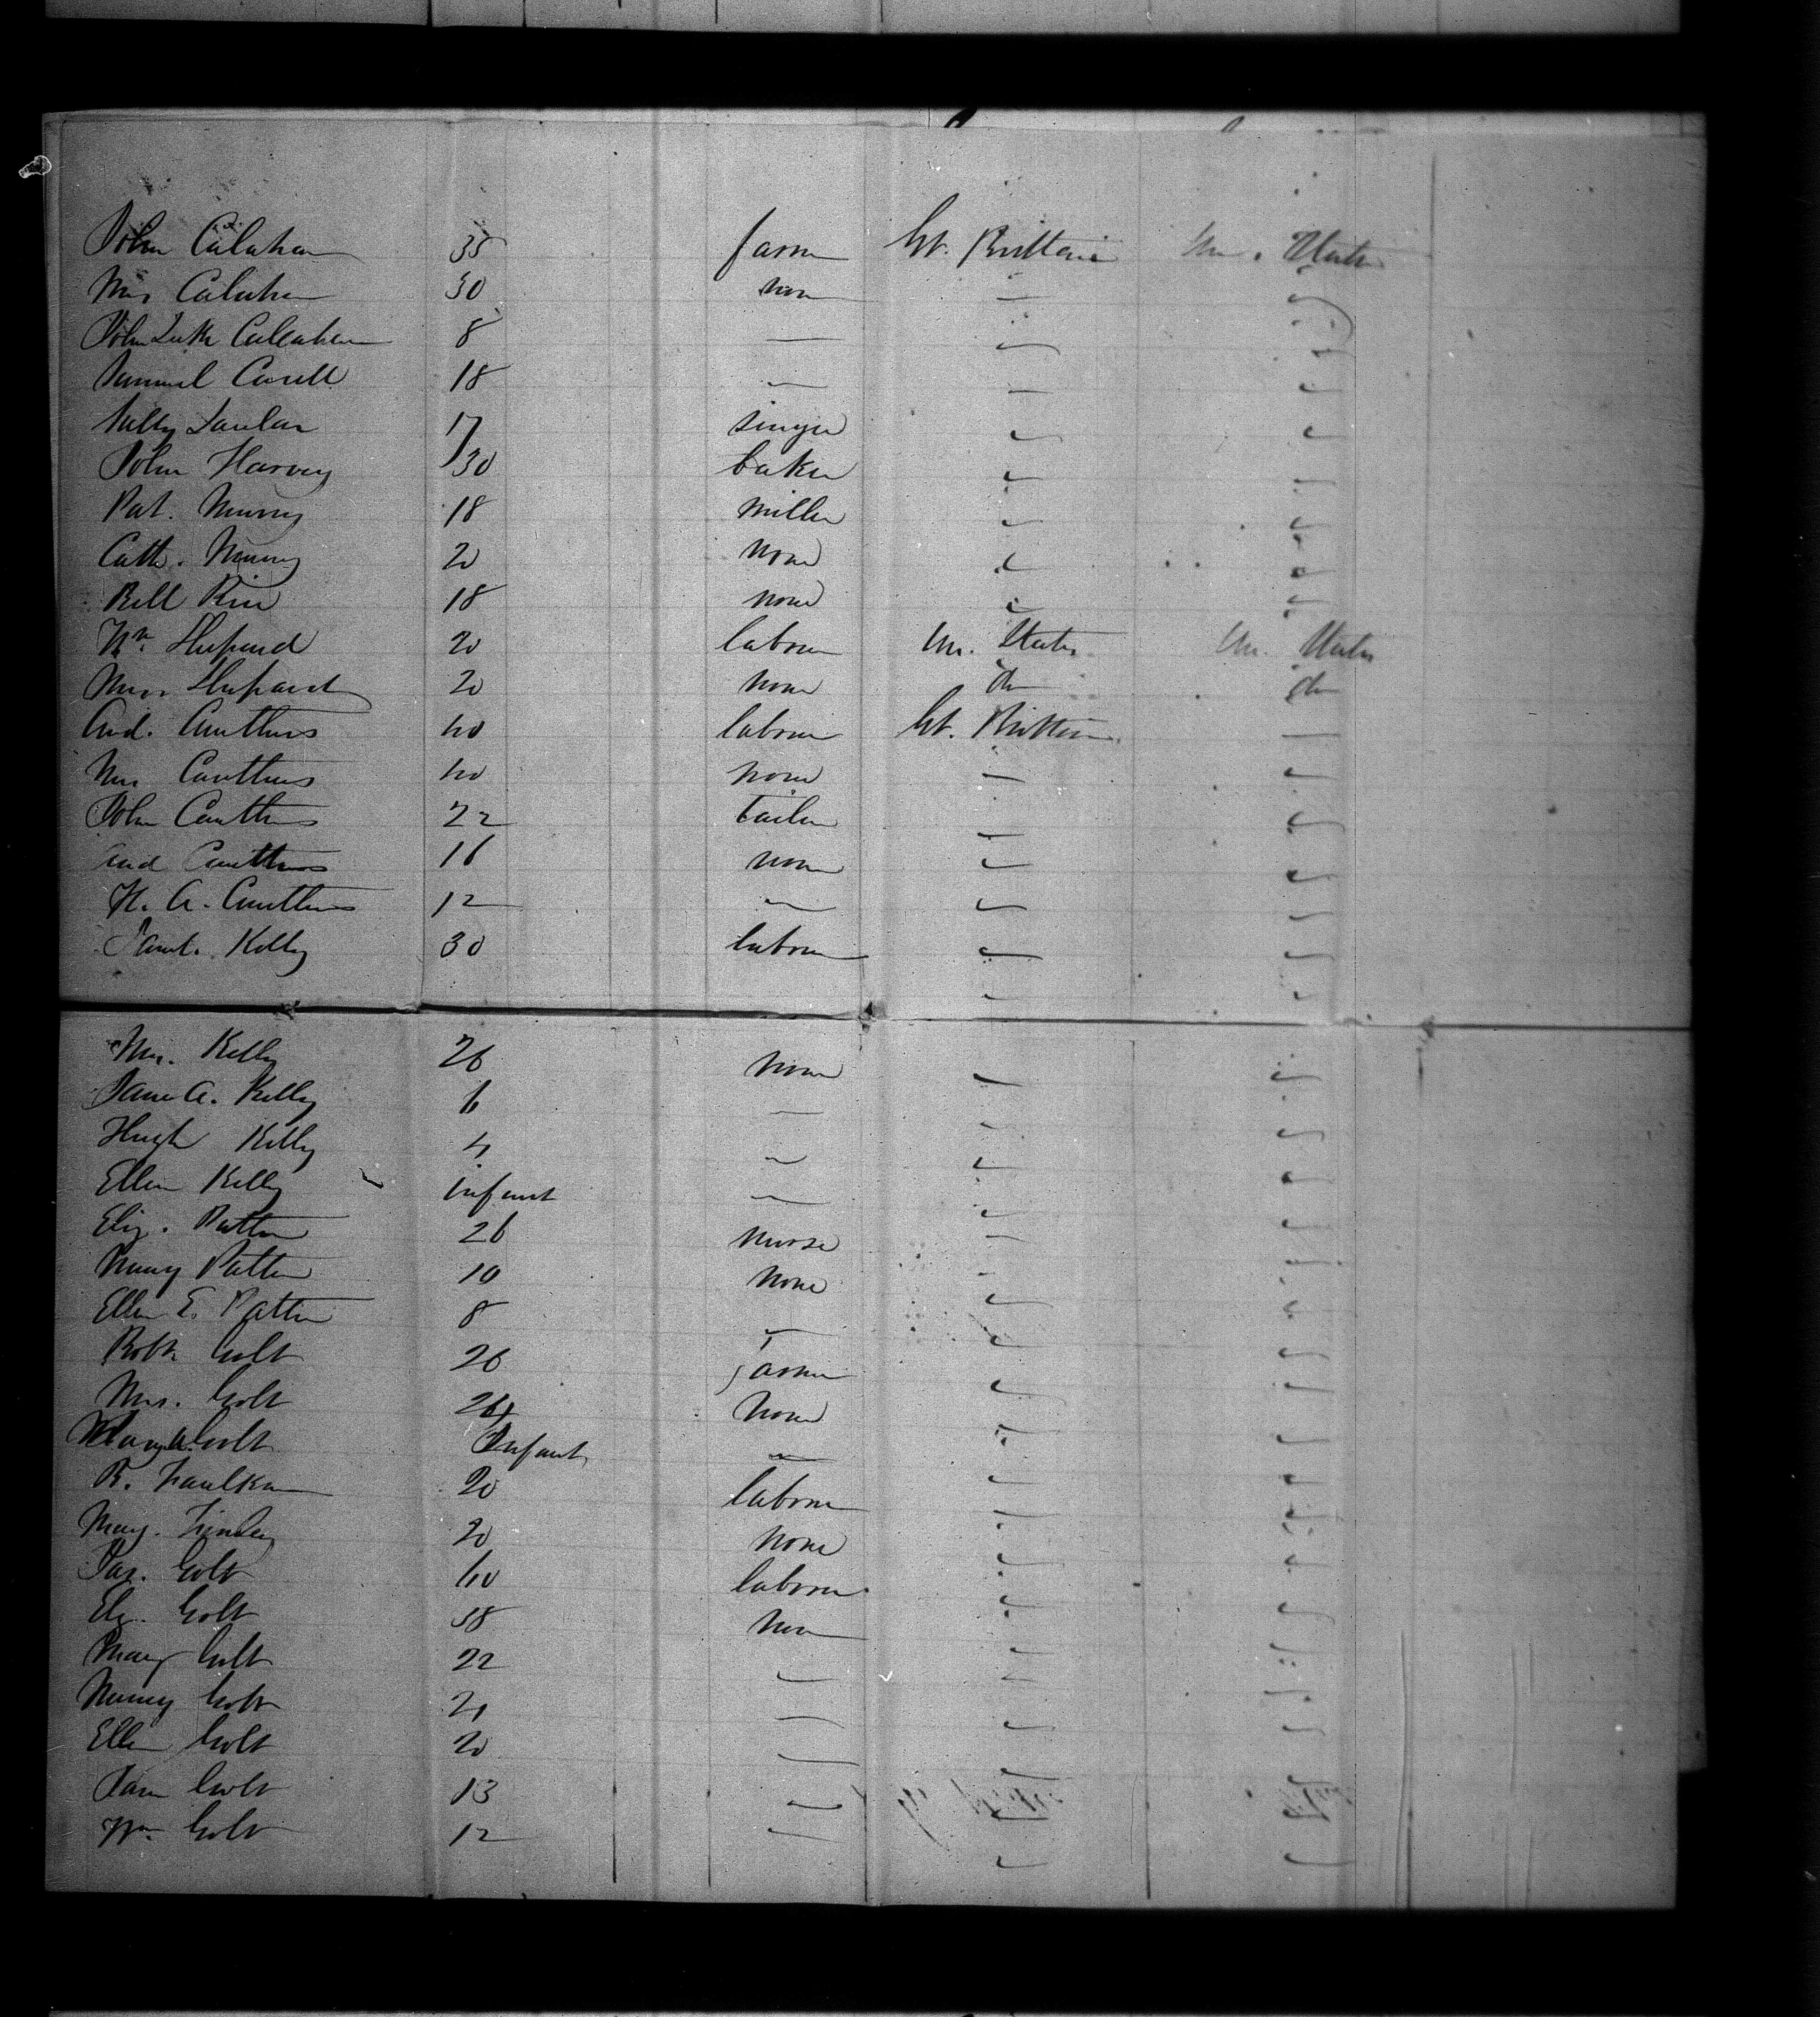 John Calahan 35 farmer Gt. Brittain Un. States
Mrs Calahan 30 none —
John Calahan 8 — —
Samuel Carell 18 — —
17 singer
John Harvey 30 baker
Pat. Murry 18 miller
Cath. Murry 20 none
Bell Rice 18 none
Wm. Shepard 20 labour Un. States Un. States
Miss Shepard 20 none do do
And. Cauthers 40 labour Gt. Brittain
Mrs Cauthers 40 none —
John Cauthers 22 tailor —
And Cauthers 16 none
H. A. Cauthers 12 —
Saml. Kelly 30 labour
Mrs. Kelly 26 none
Jane A. Kelly 6 —
Hugh Kelly 4 —
Ellen Kelly infant —
Eliz. Patten 26 nurse
Nancy Patten 10 none
Ellen E. Patten 8 —
Robt Golt 26 farmer
Mrs. Golt 26 none
Mary A. Golt Infant —
R. Faulkner 20 labour
Mary. 20 none
Jas. Golt 60 labour
Elz. Golt 58 none
Mary Golt 22 —
Nancy Golt 21 —
Ellen Golt 20 —
Jane Golt 13 —
Wm. Golt 12 —